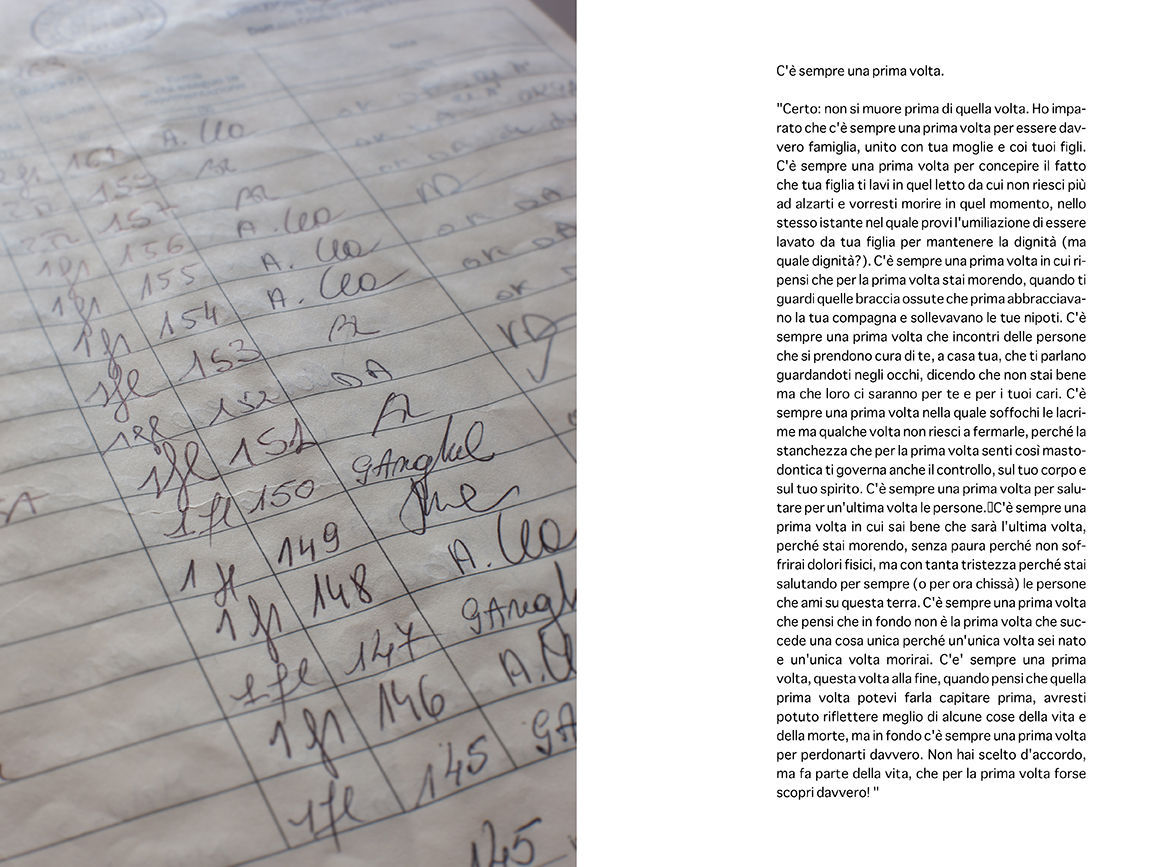 161 A. Leo
159
157
156 A. Leo
1fl 155 A. Leo
1fl 154 A. Leo
1fl 153
1fl 152 DA
1fl 151
1fl 150 GAnghel
1fl 149
1fl 148 A. Leo
1fl 147
1fl 146
1fl 145
145
C'è sempre una prima volta.
"Certo: non si muore prima di quella volta. Ho impa-
rato che c'è sempre una prima volta per essere dav-
vero famiglia, unito con tua moglie e coi tuoi figli.
C'è sempre una prima volta per concepire il fatto
che tua figlia ti lavi in quel letto da cui non riesci più
ad alzarti e vorresti morire in quel momento, nello
stesso istante nel quale provi l'umiliazione di essere
lavato da tua figlia per mantenere la dignità (ma
quale dignità?). C'è sempre una prima volta in cui ri-
pensi che per la prima volta stai morendo, quando ti
guardi quelle braccia ossute che prima abbracciava-
no la tua compagna e sollevavano le tue nipoti. C'è
sempre una prima volta che incontri delle persone
che si prendono cura di te, a casa tua, che ti parlano
guardandoti negli occhi, dicendo che non stai bene
ma che loro ci saranno per te e per i tuoi cari. C'è
sempre una prima volta nella quale soffochi le lacri-
me ma qualche volta non riesci a fermarle, perché la
stanchezza che per la prima volta senti così masto-
dontica ti governa anche il controllo, sul tuo corpo e
sul tuo spirito. C'è sempre una prima volta per salu-
tare per un'ultima volta le persone.▯C'è sempre una
prima volta in cui sai bene che sarà l'ultima volta,
perché stai morendo, senza paura perché non sof-
frirai dolori fisici, ma con tanta tristezza perché stai
salutando per sempre (o per ora chissà) le persone
che ami su questa terra. C'è sempre una prima volta
che pensi che in fondo non è la prima volta che suc-
cede una cosa unica perché un'unica volta sei nato
e un'unica volta morirai. C'e' sempre una prima
volta, questa volta alla fine, quando pensi che quella
prima volta potevi farla capitare prima, avresti
potuto riflettere meglio di alcune cose della vita e
della morte, ma in fondo c'è sempre una prima volta
per perdonarti davvero. Non hai scelto d'accordo,
ma fa parte della vita, che per la prima volta forse
scopri davvero! "